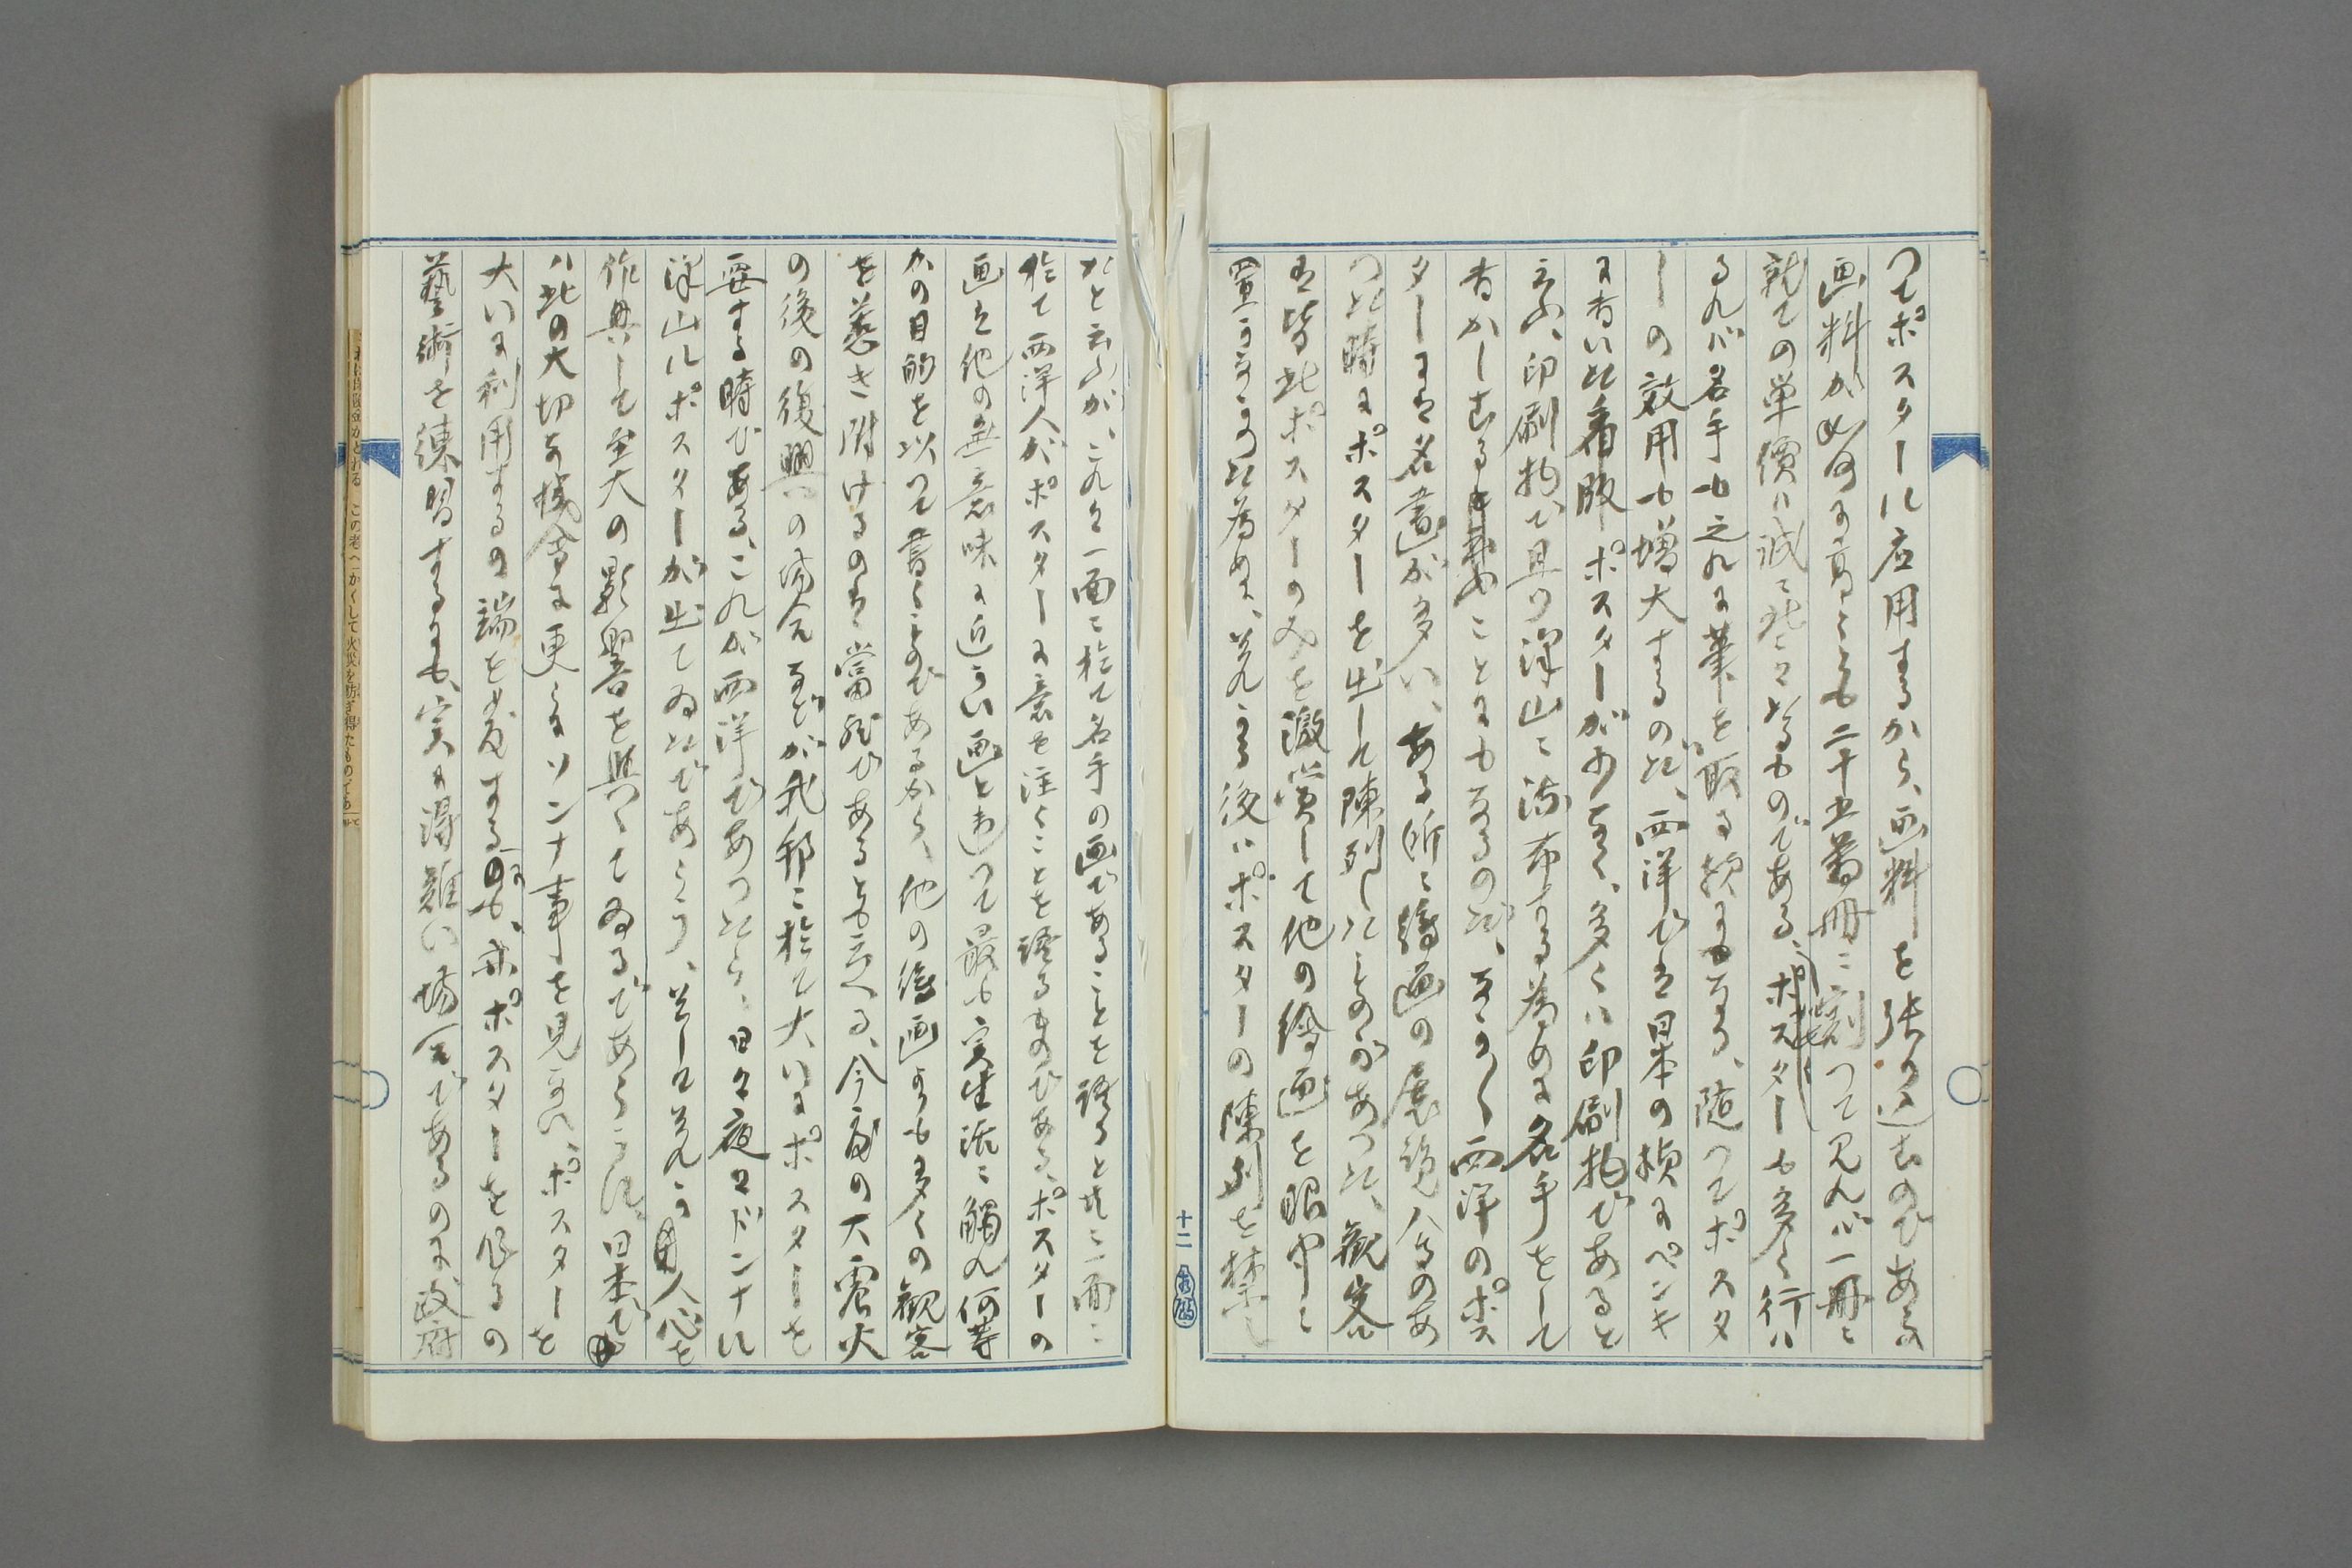 つてポスターに応用するから、画料を張り込むのである
画料が如何に高くとも二十五萬冊に割つて見れバ一冊に
就ての単價ハ誠に些々たるものである、ポスターも多く行ハ
るれバ名手も之れに筆を取る様になる、随つてポスタ
ーの效用も増大するのだ、西洋でハ日本の様にペンキ
に書いた看版ポスターが少なく、多くハ印刷物であると
云ふ、印刷物で且つ澤山に流布する為めに名手をして
書かしむることにもなるのだ、西洋のポス
ターにハ名画が多い、ある所に繪画の展覧会のあ
つた時にポスターを出して陳列したことがあつた、観客
ハ皆此ポスターのみを激賞して他の繪画を眼中に
置かなかつた為めに、其れから後ハポスターの陳列を禁じ
たと云ふが、これは一面に於て名手の画であることを語ると共に一面に
於て西洋人がポスターに意を注ぐことを語るものである、ポスターの
画ハ他の無意味に近かい画と違つて最も実生活に觸れ何等
かの目的を以つて書くことのであるから、他の繪画よりも多くの観客
を惹き附けるのハ當然であるとも云へる、今度の大震火
の後の復興の場合などが我邦に於て大いにポスターを
要する時である、これが西洋であつたら、日々夜々ドンナに
澤山にポスターが出てゐたであらう、そして其れが人心を
作興して至大の影響を與へてゐるであらうに、日本で
ハ此の大切な機会に更らにソンナ事を見ない、ポスターを
大いに利用するの端を発するにも、亦ポスターを作るの
藝術を練習するにも、実に得難い場合であるのに、政府
十二
この老へ一かくして火災を防ぎ得たものである